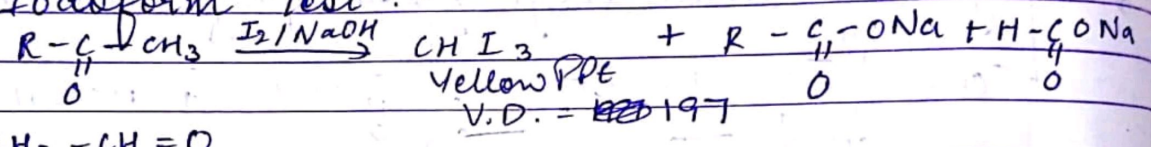 Iodoform Test.
R - C - CH3 I2 / NaOH CH I3 + R - C - ONa + H - C O Na
|| || ||
O Yellow PPt O O
V.D. = 197
- CH = O